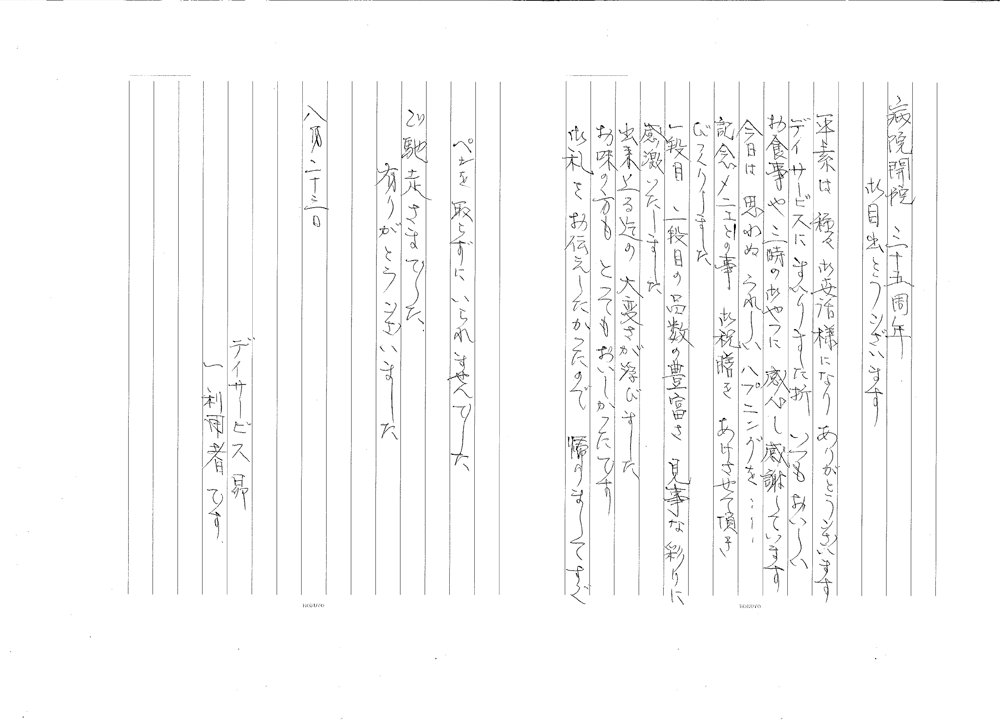 病院開院 三十五周年
御目出とうございます
平素は 種々 御世話様になり ありがとうございます
デイサービスにまいりました折 いつもおいしい
お食事や 三時のおやつに 感心し感謝しています
今日は 思わぬ うれしい ハプニングを‥‥
記念メニューとの事 御祝膳を あけさせて頂き
びっくりしました
一段目 二段目の品数の豊富さ 見事な彩りに
感激いたしました
出来上る迄の 大変さが浮びました
お味の方も とってもおいしかったです
御礼を お伝えしたかったので 帰りましてすぐ
ペンを 取らずに いられませんでした
ご馳走さまでした
有りがとうございました
八月二十三日
デイサービス 昴
一利用者です
KOKUYO
KOKUYO